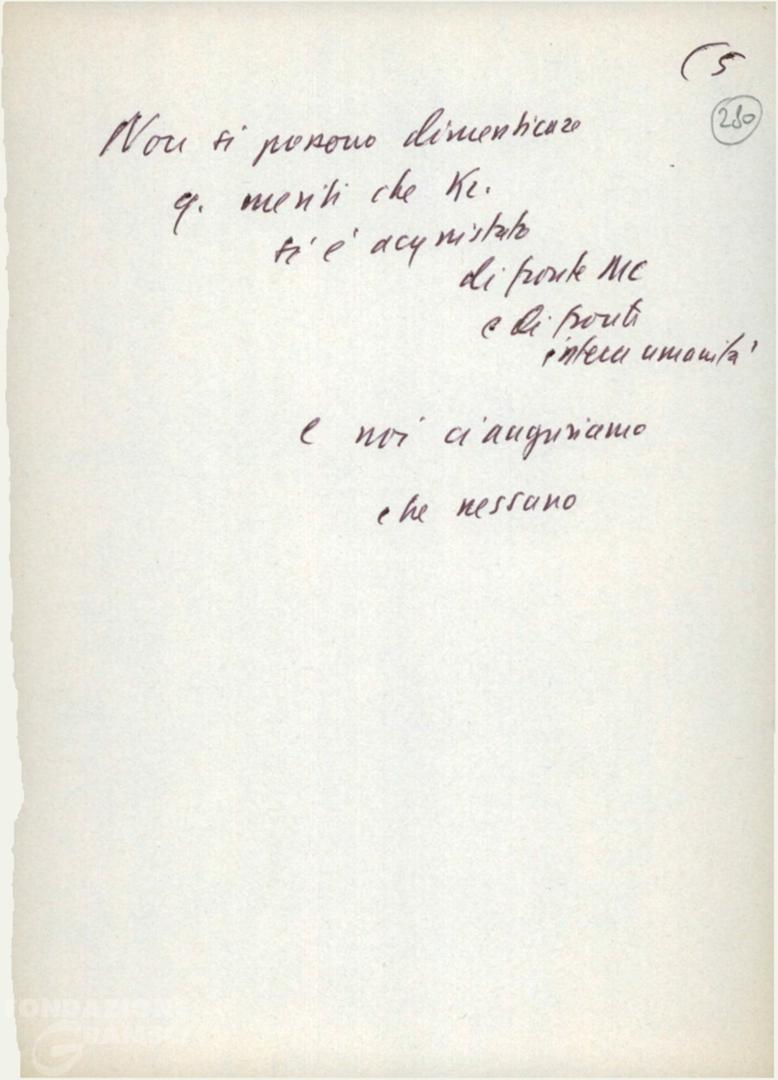 (5
280
Non si possono dimenticare
q. meriti che Kr.
si è acquistato
di fronte MC
e di fronti
intera umanità
e noi ci auguriamo
che nessuno
FONDAZIONE
GRAMSCI